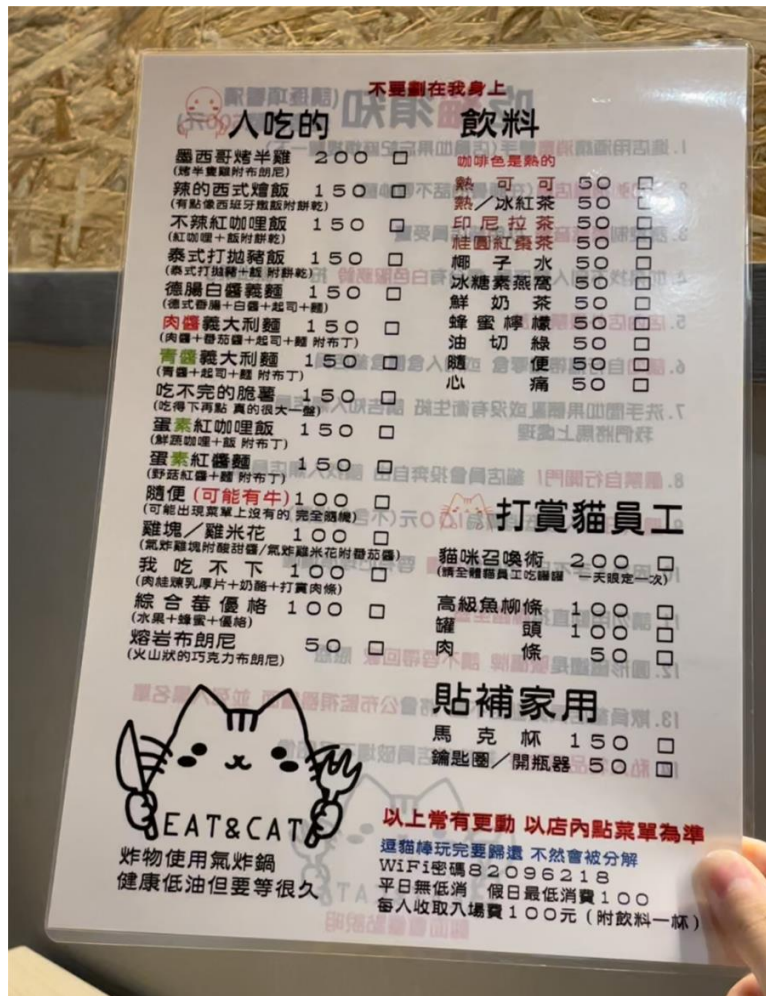 不要劃在我身上
人吃的
墨西哥烤半雞 200 □
(烤半隻雞附布朗尼)
辣的西式燴飯 150 □
(有點像西班牙燉飯附餅乾)
不辣紅咖哩飯 150 □
(紅咖哩+飯附餅乾)
泰式打拋豬飯 150 □
(泰式打拋豬+飯 附餅乾)
德腸白醬義麵 150 □
(德式香腸+白醬+起司+麵)
肉醬義大利麵 150 □
(肉醬+番茄醬+起司+麵 附布丁)
青醬義大利麵 150 □
(青醬+起司+麵 附布丁)
吃不完的脆薯 150 □
(吃得下再點 真的很大一盤)
蛋素紅咖哩飯 150 □
(鮮蔬咖哩+飯 附布丁)
蛋素紅醬麵 150 □
(野菇紅醬+麵 附布丁)
隨便(可能有牛)100 □
(可能出現菜單上沒有的 完全隨機)
雞塊/雞米花 100 □
(氣炸雞塊附酸甜醬/氣炸雞米花附番茄醬)
我吃不下 100 □
(肉桂煉乳厚片+奶酪+打賞肉條)
綜合莓優格 100 □
(水果+蜂蜜+優格)
熔岩布朗尼 50 □
(火山狀的巧克力布朗尼)
EAT&CAT
炸物使用氣炸鍋
健康低油但要等很久
飲料
咖啡色是熱的
熱可可 50 □
熱/冰紅茶 50 □
印尼拉茶 50 □
桂圓紅棗茶 50 □
椰子水 50 □
冰糖素燕窩 50 □
鮮奶茶 50 □
蜂蜜檸檬 50 □
油切綠 50 □
隨便 50 □
心痛 50 □
打賞貓員工
貓咪召喚術 200 □
(請全體貓員工吃囉囉 一天限定一次)
高級魚柳條 100 □
罐頭 100 □
肉條 50 □
貼補家用
馬克杯 150 □
鑰匙圈/開瓶器 50 □
以上常有更動 以店內點菜單為準
逗貓棒玩完要歸還 不然會被分解
WiFi密碼82096218
平日無低消 假日最低消費100
每人收取入場費100元(附飲料一杯)